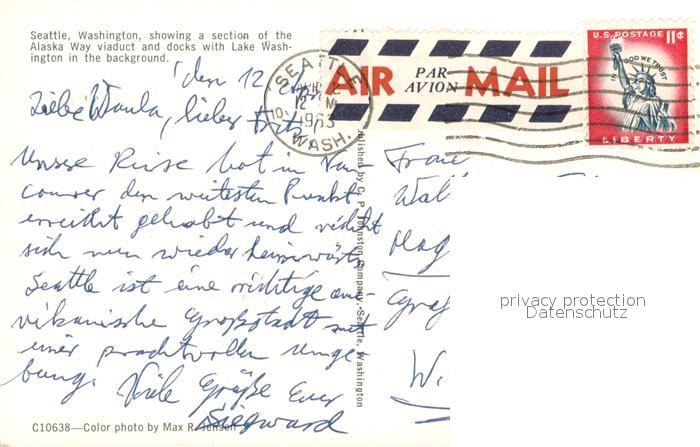 Seattle, Washington, showing a section of the
Alaska Way viaduct and docks with Lake Wash-
ington in the background.
SEATTLE
12 M
1963
WASH.
AIR PAR AVION MAIL
U.S. POSTAGE 11¢
IN GOD WE TRUST
LIBERTY
den 12
Liebe Wanla, lieber Fritz,
Unsere Reise hat in Van-
couver den weitesten Punkt
erreicht gehabt und richtet
sich nun wieder heimwärts
Seattle ist eine richtige ame-
rikanische Großstadt mit
einer prachtvollen Umge-
bung. Viele Grüße Euer
Siegward
Published by C. P. Johnston Company, Seattle, Washington
W.
privacy protection
Datenschutz
C10638—Color photo by Max R. Jensen